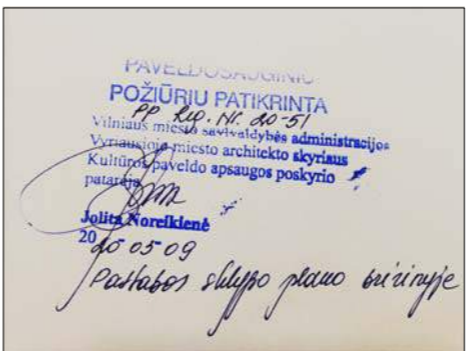 PAVELDOSAUGINIU
POŽIŪRIU PATIKRINTA
PP Reg. Nr. 20-51
Vilniaus miesto savivaldybės administracijos
Vyriausiojo miesto architekto skyriaus
Kultūros paveldo apsaugos poskyrio
patarėja
Jolita Noreikienė
2020 05 09
Pastabos sklypo plano brėžinyje